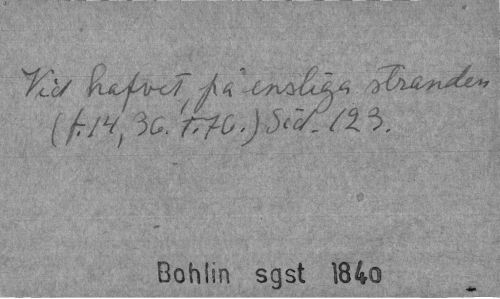 Vid hafvet, på ensliga stranden
(f.14, 36. t.76.) Sid. 123.
Bohlin sgst 1840